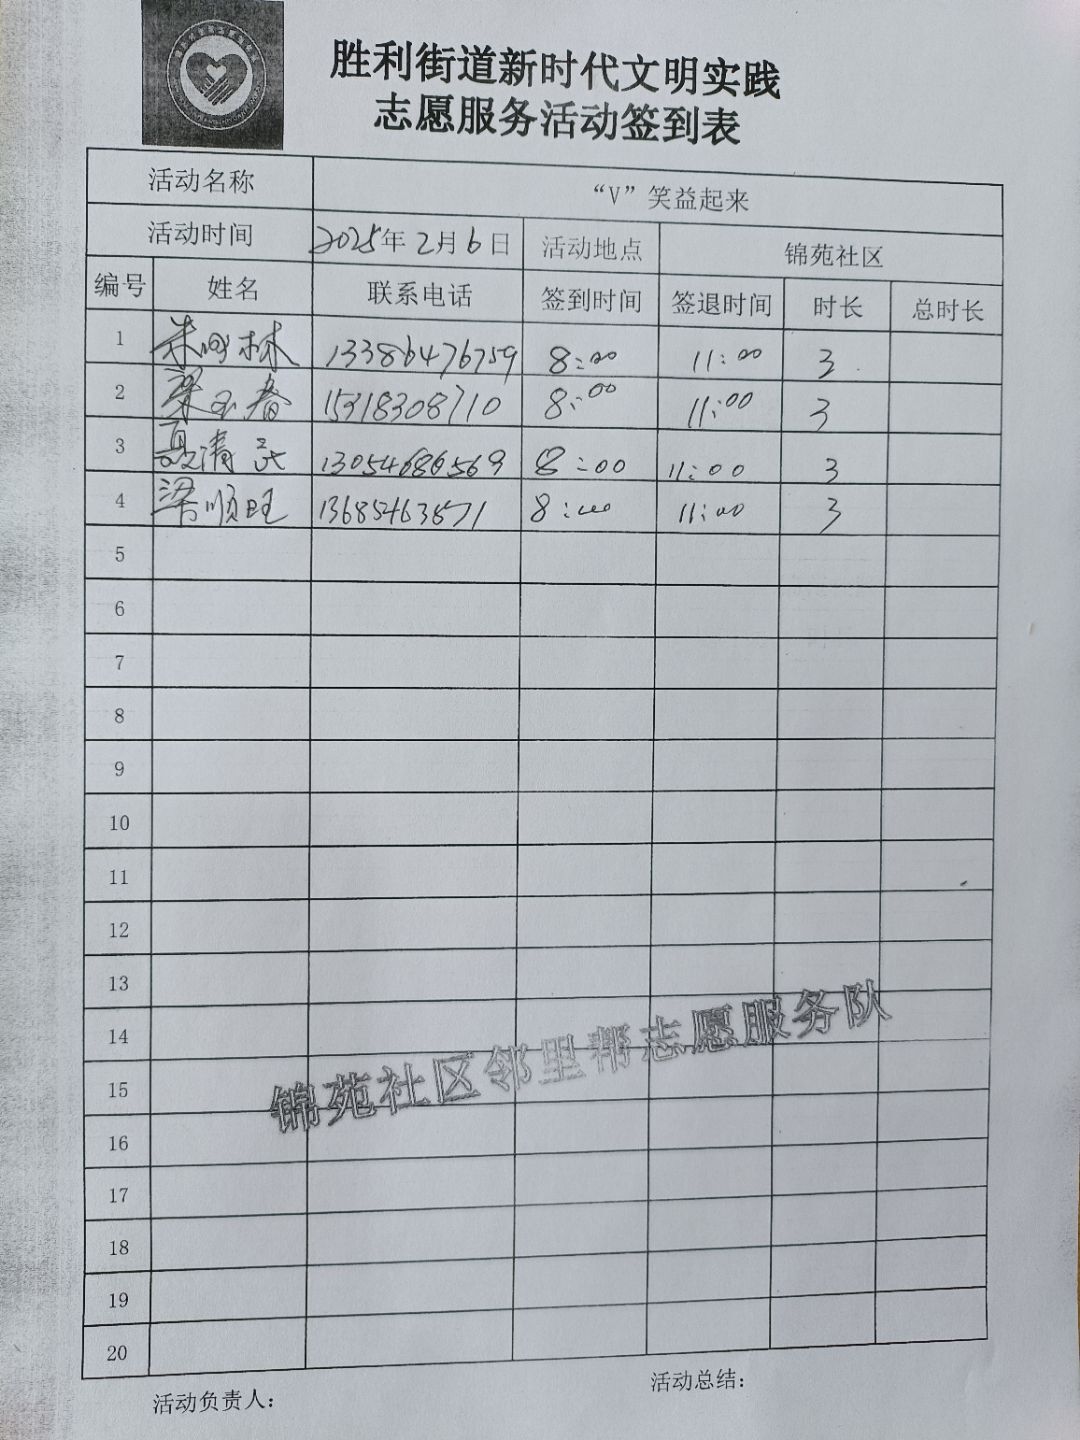 胜利街道新时代文明实践
志愿服务活动签到表
活动名称 “V”笑益起来
活动时间 2025年2月6日 活动地点 锦苑社区
编号 姓名 联系电话 签到时间 签退时间 时长 总时长
1 林 13386476759 8:00 11:00 3
2 梁玉春 15318308710 8:00 11:00 3
3 聂清民 13054686569 8:00 11:00 3
4 梁顺旺 13685463871 8:00 11:00 3
5
6
7
8
9
10
11
12
13
14
15
16
17
18
19
20
锦苑社区邻里帮志愿服务队
活动负责人: 活动总结: